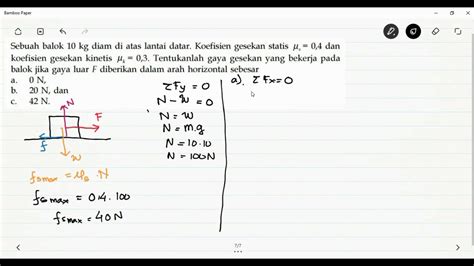 Bamboo Paper
Sebuah balok 10 kg diam di atas lantai datar. Koefisien gesekan statis μs = 0,4 dan
koefisien gesekan kinetis μk = 0,3. Tentukanlah gaya gesekan yang bekerja pada
balok jika gaya luar F diberikan dalam arah horizontal sebesar
a. 0 N,
b. 20 N, dan
c. 42 N.
N
F
f
w
fsmax = μs N
fsmax = 0,4 . 100
fsmax = 40 N
ΣFy = 0
N - w = 0
N = w
N = m.g
N = 10.10
N = 100N
a). ΣFx = 0
7/7